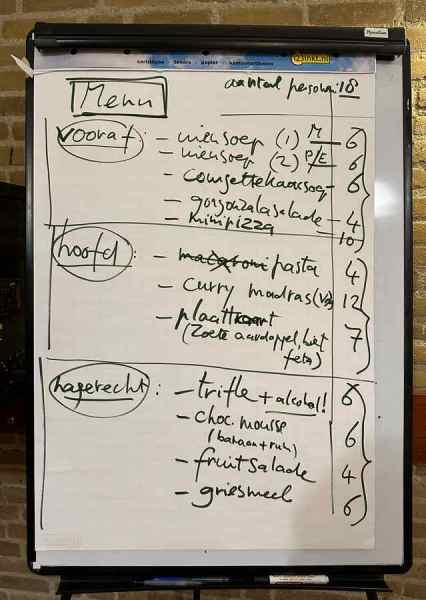 aantal personen: 18
Menu
Vooraf: - miensoep (1) M 6
- miensoep (2) P/E 6
- courgettekaassoep - 6
- gorgonzolasalade - 4
- minipizza - 10
hoofd: - macaroni pasta 4
- curry madras 12
- plaattaart 7
(zoete aardappel, biet
feta)
nagerecht: - trifle + alcohol! 6
- choc. mousse
(banaan + rum) 6
- fruitsalade 4
- griesmeel 6